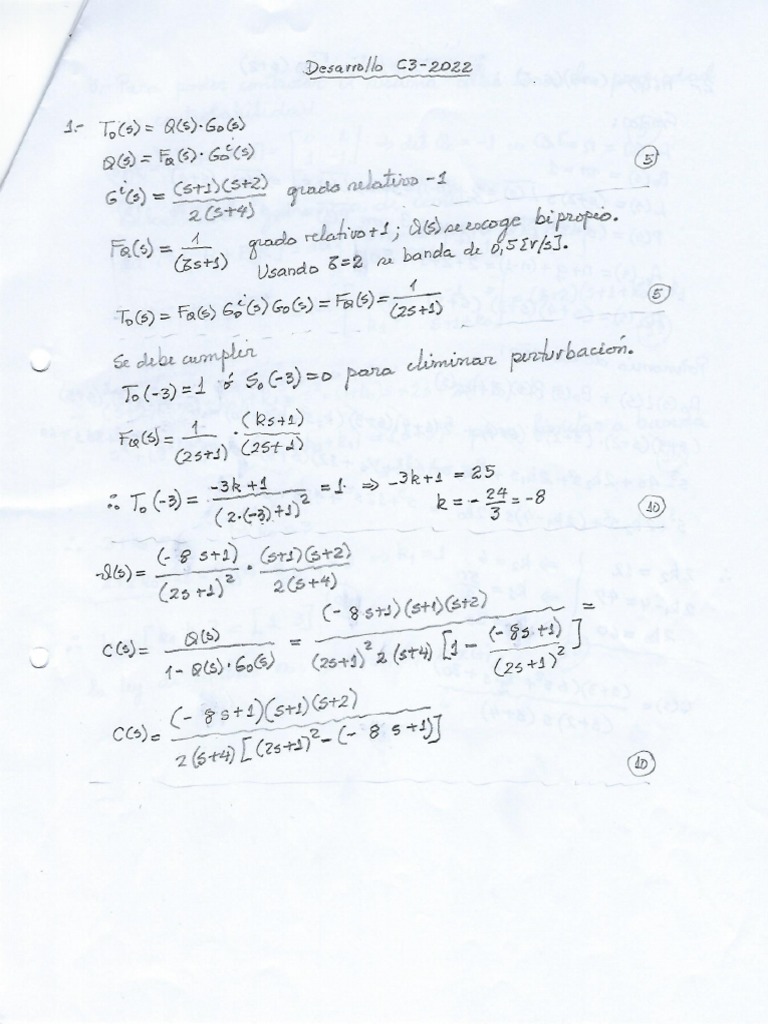 Desarrollo C3-2022
1.- To(s) = Q(s)·Go(s)
Q(s) = FQ(s)·Goⁱ(s)
Gⁱ(s) = (s+1)(s+2) / 2(s+4) grado relativo -1 (5)
FQ(s) = 1 / (τs+1) grado relativo +1; Q(s) se escoge bipropeo.
Usando τ=2 se banda de 0,5[r/s].
To(s) = FQ(s) Goⁱ(s) Go(s) = FQ(s) = 1 / (2s+1) (5)
Se debe cumplir
To(-3) = 1 ó So(-3) = 0 para eliminar perturbación.
FQ(s) = 1 / (2s+1) · (ks+1) / (2s+1)
∴ To(-3) = -3k+1 / (2·(-3)+1)² = 1 ⇒ -3k+1 = 25
k = -24/3 = -8 (10)
Q(s) = (-8s+1) / (2s+1)² · (s+1)(s+2) / 2(s+4)
C(s) = Q(s) / 1-Q(s)·Go(s) = (-8s+1)(s+1)(s+2) / (2s+1)² 2(s+4)[1 - (-8s+1) / (2s+1)²] =
C(s) = (-8s+1)(s+1)(s+2) / 2(s+4)[(2s+1)² - (-8s+1)]
(10)